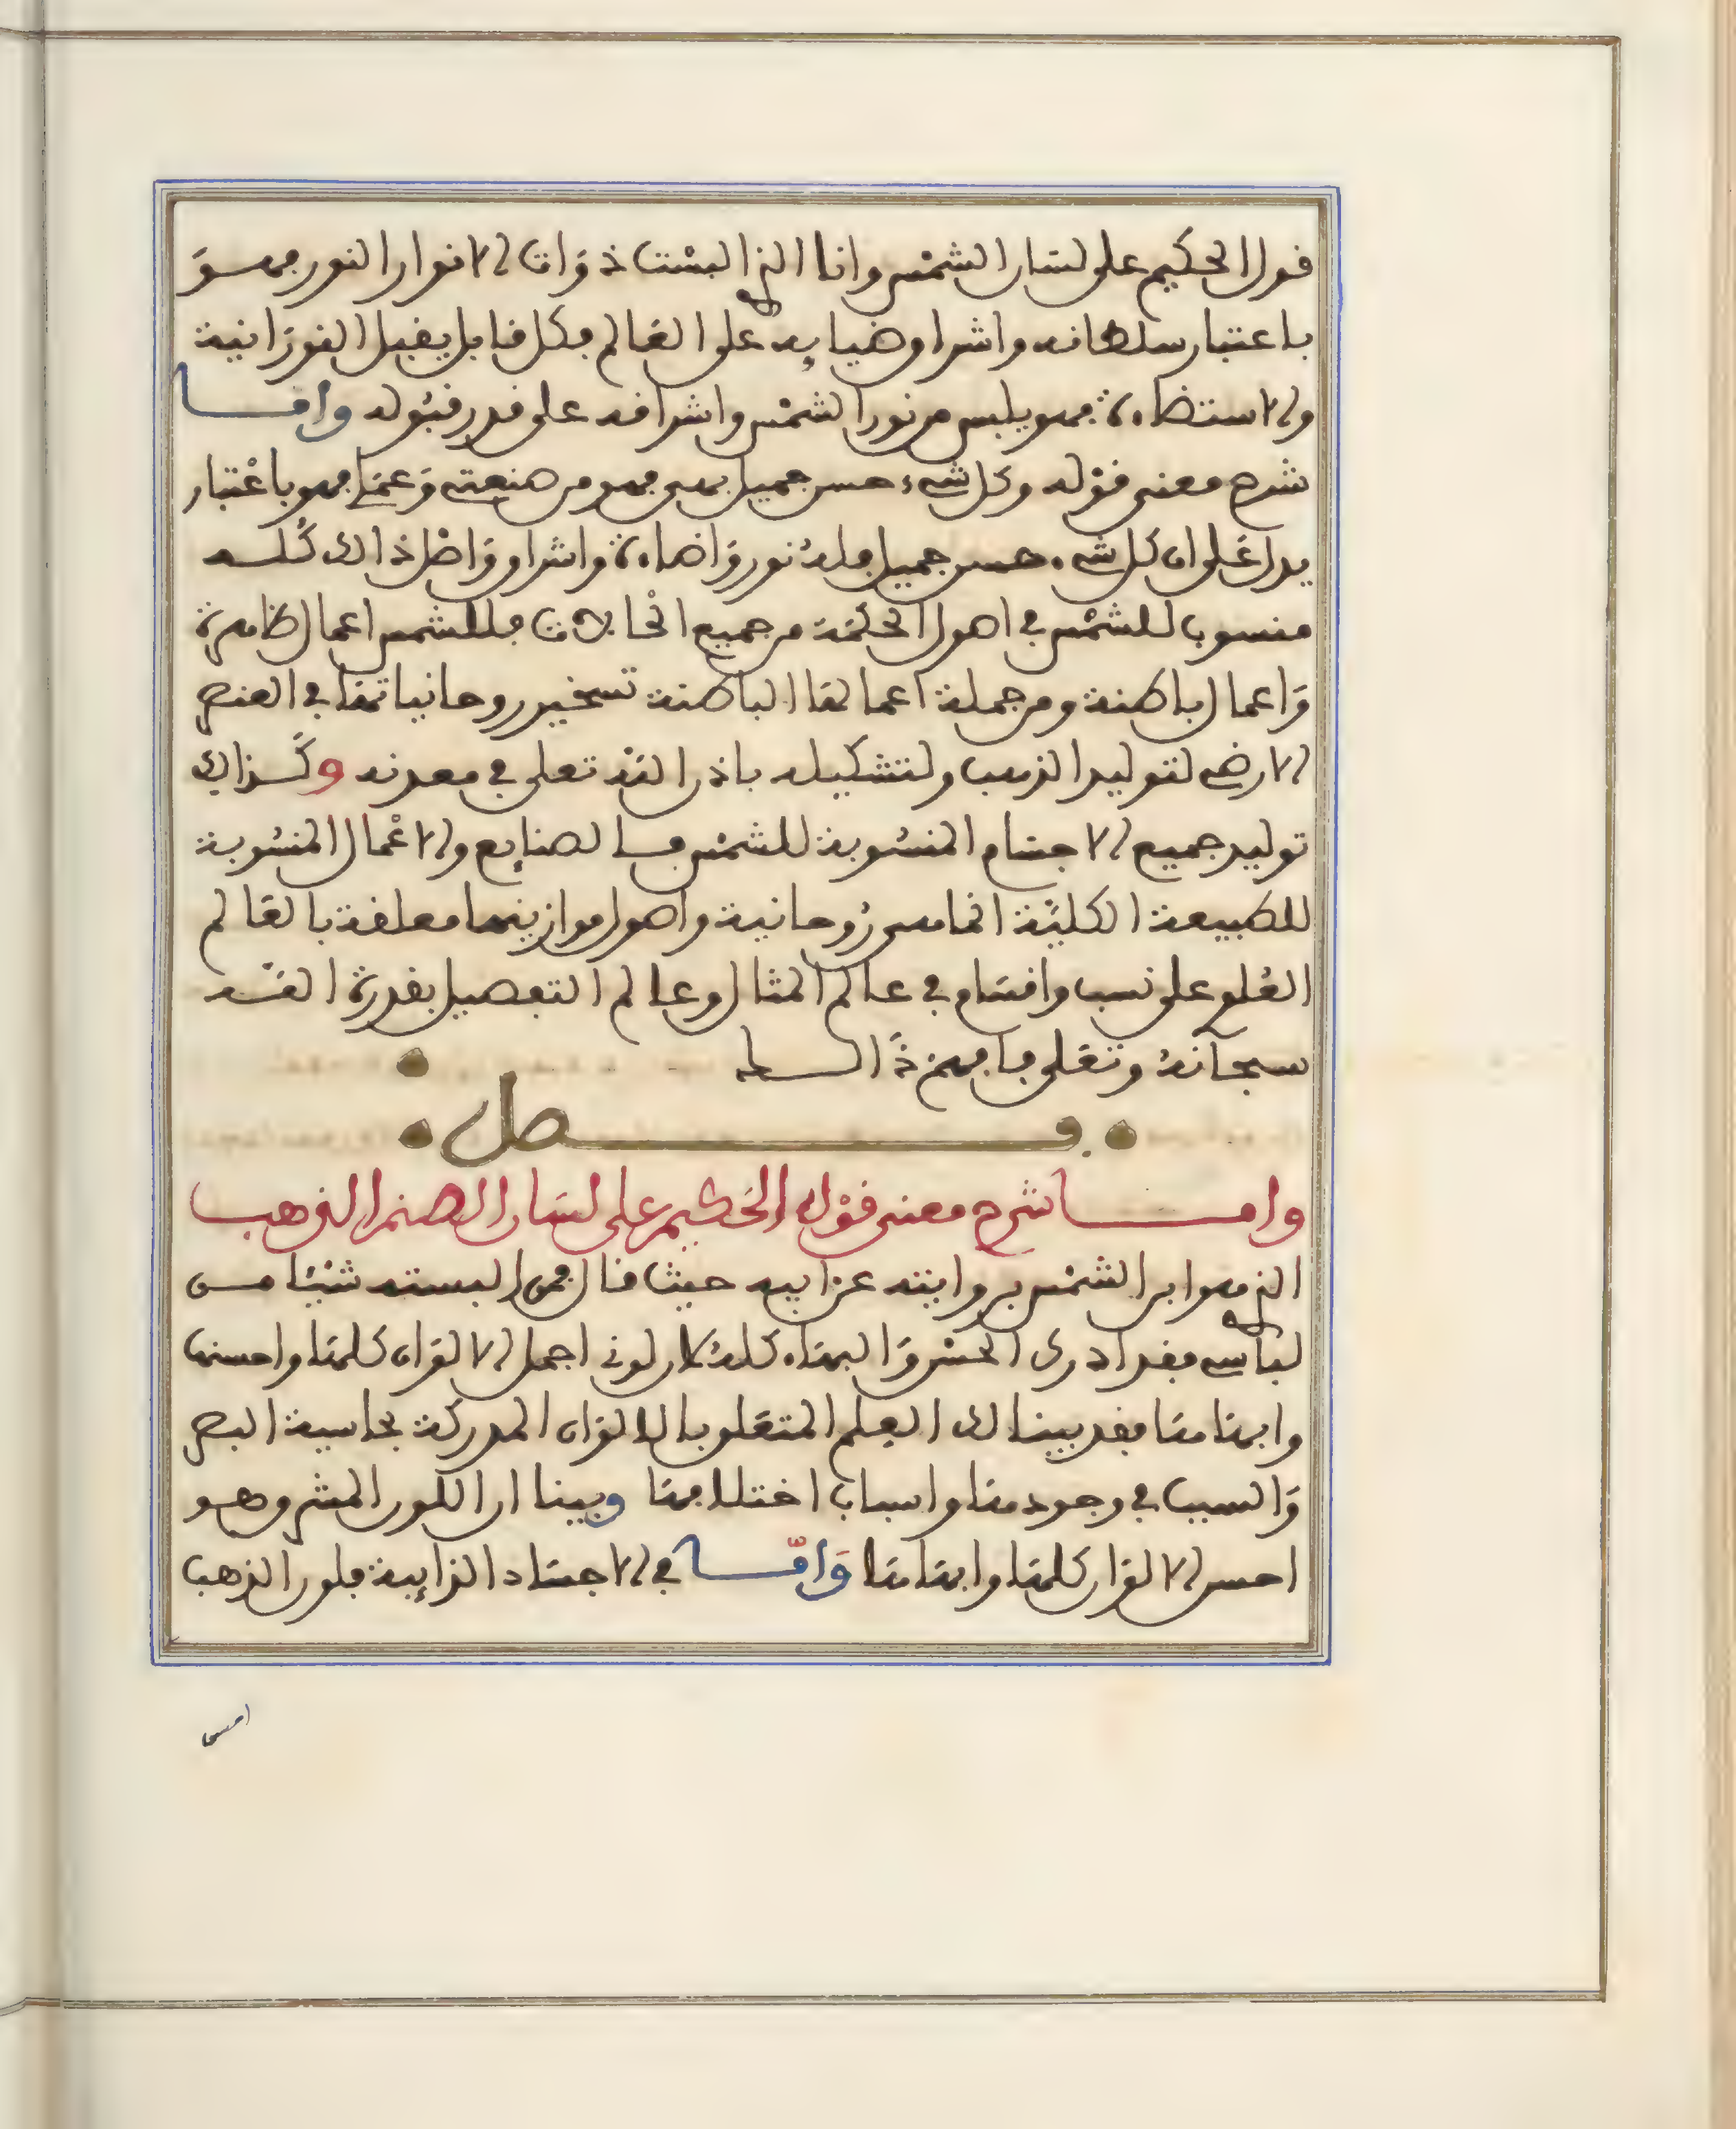 قول الحكيم على لسان الشمس وانا الذي البست ذوات الانوار النور فهو
باعتبار سلطانه واشراق ضيايه على العالم فكل قابل يقبل النورانية
والاستضاءة فهو يلبس من نور الشمس واشراقه على قدر قبوله واما
شرح معنى قوله وكل شيء حسن جميل بهي فهو من صنعتي وعني فهو باعتبار
يدل على ان كل شيء حسن جميل فله نور واضاءة واشراق واصل ذالك كله
منسوب للشمس في اصول الحكمة من جميع الحالات فللشمس اعمال ظاهرة
واعمال باطنة ومن جملة اعمالها الباطنة تسخير روحانياتها في العنصر
الارضي لتوليد الذهب ولتشكيله باذن الله تعلى في معدنه وكذالك
توليد جميع الاجسام المنسوبة للشمس فالصنايع والاعمال المنسوبة
للطبيعة الكلية انما هي روحانية واصول موازينها معلقة بالعالم
العلوي على نسب واقسام في عالم المثال وعالم التفصيل بقدرة الله
سبحانه وتعلى فافهم ذالك
فصل
واما شرح معنى قول الحكيم على لسان الصنم الذهب
الذي هو ابن الشمس بروايته عن ابيه حيث قال فمن البسته شيئا من
لباسي فقد ادرك الحسن والبهاء كله لان لوني اجمل الالوان كلها واحسنها
وابهاها فقد بينا لك العلم المتعلق بالالوان المدركة بحاسية البصر
والسبب في وجودها واسباب اختلافها وبينا ان اللون المشرق هو
احسن الالوان كلها وابهاها واما في الاجساد الذايبة فلون الذهب
احسن